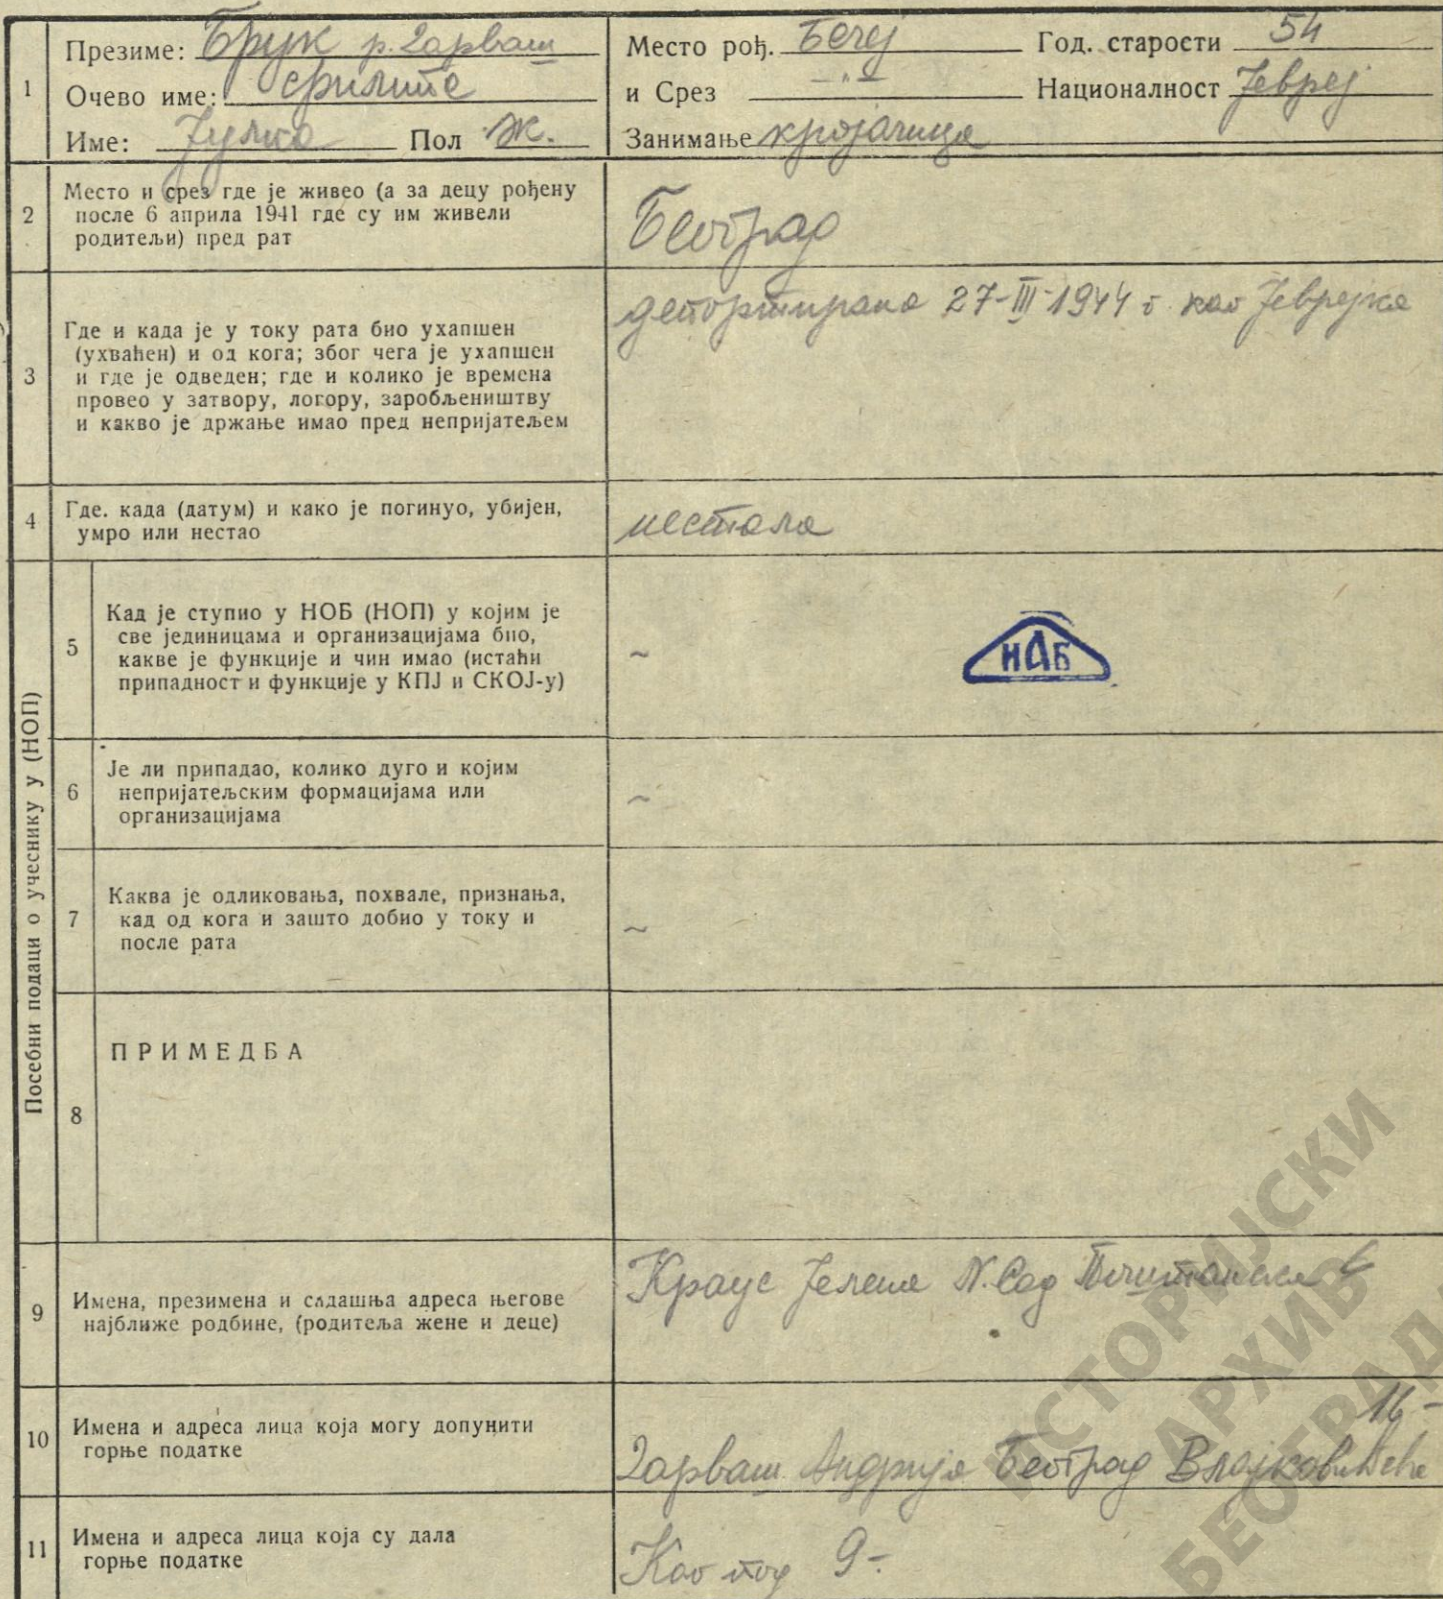 1
Презиме: Брук р. Дарваш
Очево име: Филип
Име: Јулка Пол Ж.
Место рођ. Бечеј Год. старости 54
и Срез —„— Националност Јевреј
Занимање кројачица
2
Место и срез где је живео (а за децу рођену
после 6 априла 1941 где су им живели
родитељи) пред рат
Београд
3
Где и када је у току рата био ухапшен
(ухваћен) и од кога; због чега је ухапшен
и где је одведен; где и колико је времена
провео у затвору, логору, заробљеништву
и какво је држање имао пред непријатељем
депортирана 27-III-1944 г. као Јеврејка
4
Где. када (датум) и како је погинуо, убијен,
умро или нестао
нестала
Посебни подаци о учеснику у (НОП)
5
Кад је ступио у НОБ (НОП) у којим је
све јединицама и организацијама био,
какве је функције и чин имао (истаћи
припадност и функције у КПЈ и СКОЈ-у)
~
ИАБ
6
Је ли припадао, колико дуго и којим
непријатељским формацијама или
организацијама
~
7
Каква је одликовања, похвале, признања,
кад од кога и зашто добио у току и
после рата
~
8
ПРИМЕДБА
9
Имена, презимена и сдашња адреса његове
најближе родбине, (родитеља жене и деце)
Краус Јелена Н. Сад
10
Имена и адреса лица која могу допунити
горње податке
16-
Дарваш Андрија Београд Влајковићева
11
Имена и адреса лица која су дала
горње податке
Као под 9-
ИСТОРИЈСКИ
АРХИВ
БЕОГРАДА